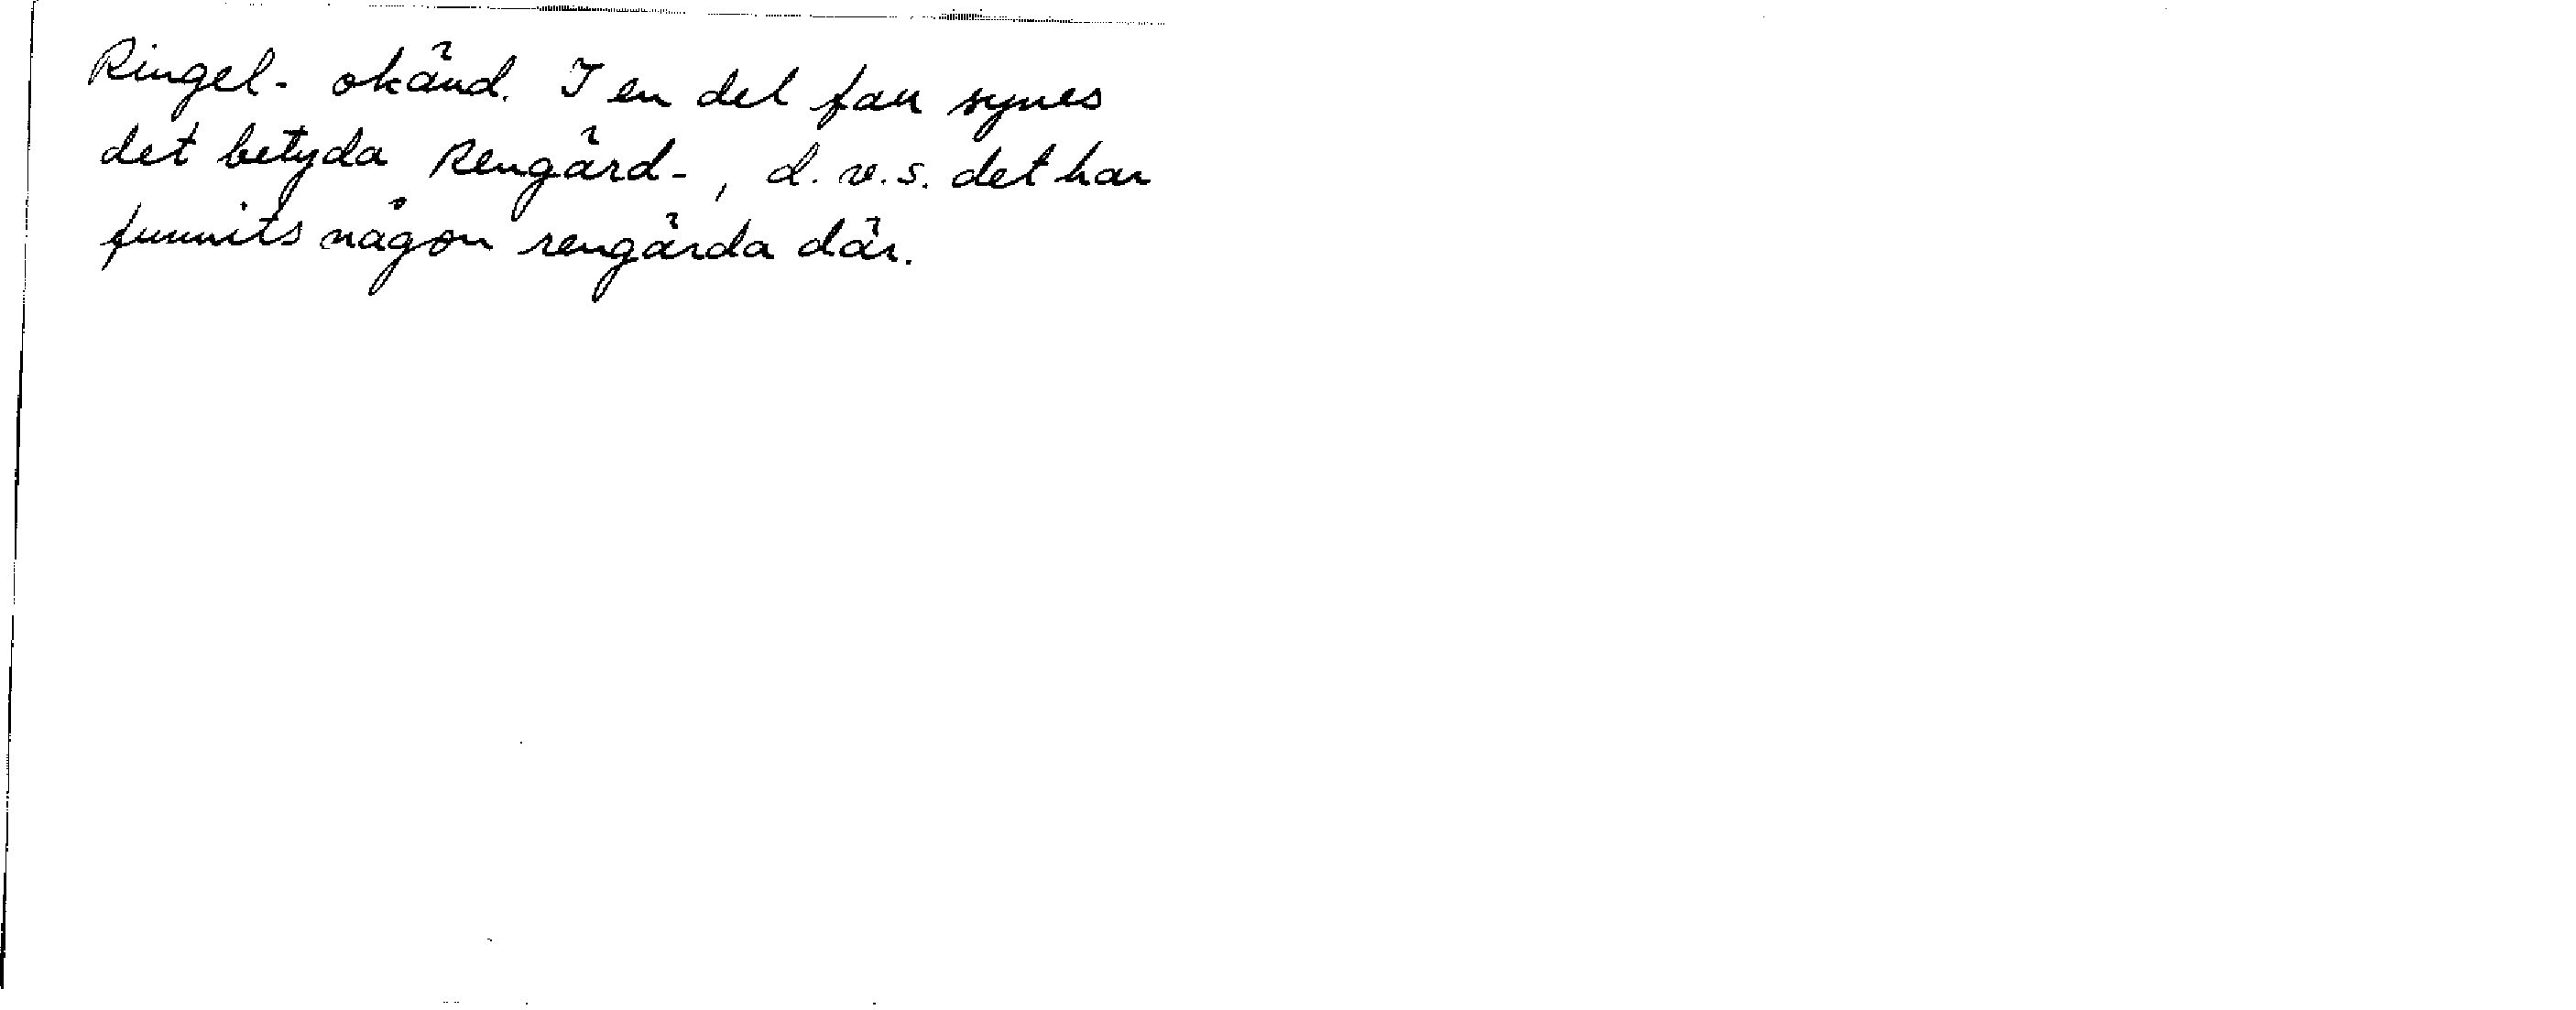 Ringel- okänd. I en del fall synes
det betyda Rengärd-, d.v.s. det har
funnits någon rengärda där.